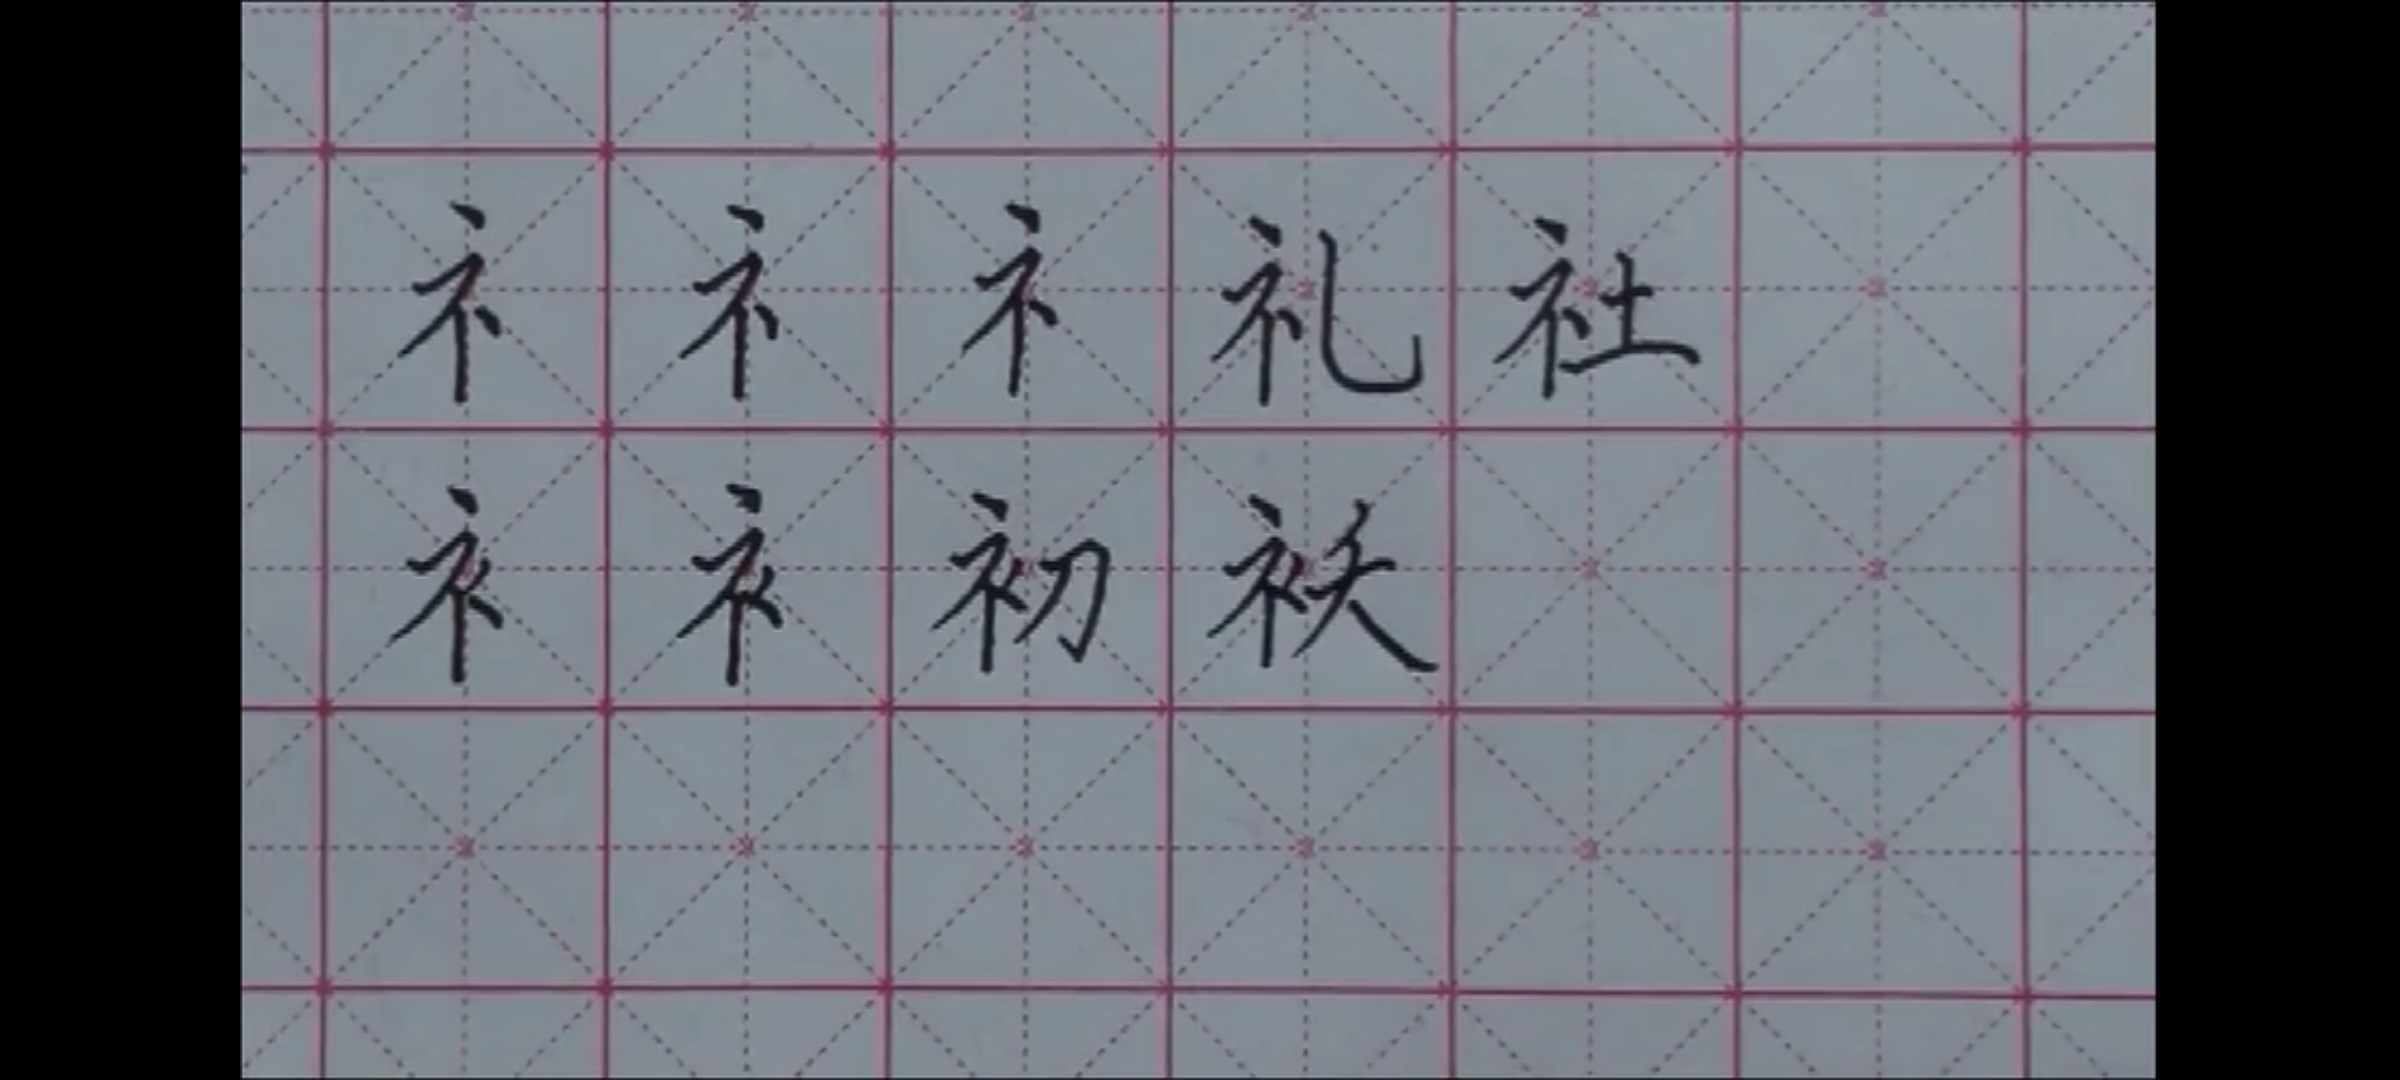 礻礻礻礼社
衤衤初袄